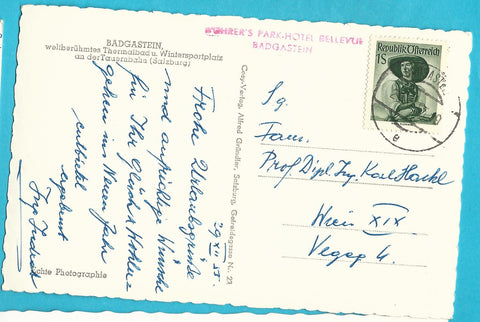 BADGASTEIN,
weltberühmtes Thermalbad u. Wintersportplatz
an der Tauernbahn (Salzburg)
ROHRER'S PARK-HOTEL BELLEVUE
BADGASTEIN
Republik Österreich
1S
29 XII 55.
Frohe Urlaubsgrüsse
und aufrichtige Wünsche
für Ihr Glück u. Wohler-
gehen im Neuen Jahr
entbietet
ergebenst
Cosy-Verlag, Alfred Gründler, Salzburg, Getreidegasse Nr. 22
Echte Photographie
Sg.
Fam.
Prof Dipl. Ing. Karl
Wien XIX
Vegag 4.